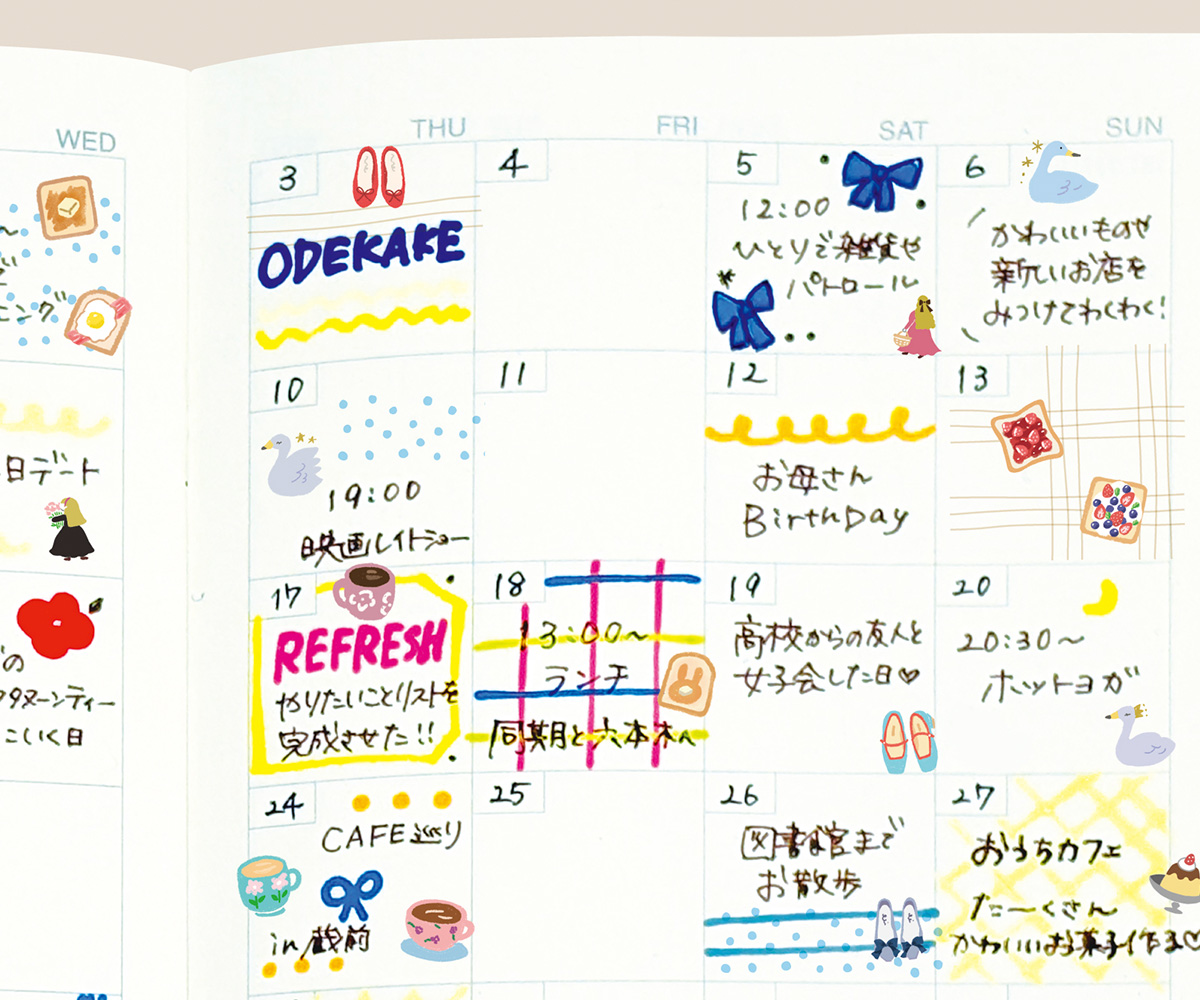 WED
THU
FRI
SAT
SUN
ング
3
ODEKAKE
4
5
12:00
ひとりで雑貨や
パトロール
6
かわいいものや
新しいお店を
みつけてわくわく!
日デート
10
19:00
映画レイトショー
11
12
お母さん
BirthDay
13
の
タヌーンティー
こいく日
17
REFRESH
やりたいことリストを
完成させた!!
18
13:00~
ランチ
同期と六本木へ
19
高校からの友人と
女子会した日♡
20
20:30~
ホットヨガ
24
CAFE巡り
in 蔵前
25
26
図書館まで
お散歩
27
おうちカフェ
たーくさん
かわいいお菓子作る♡